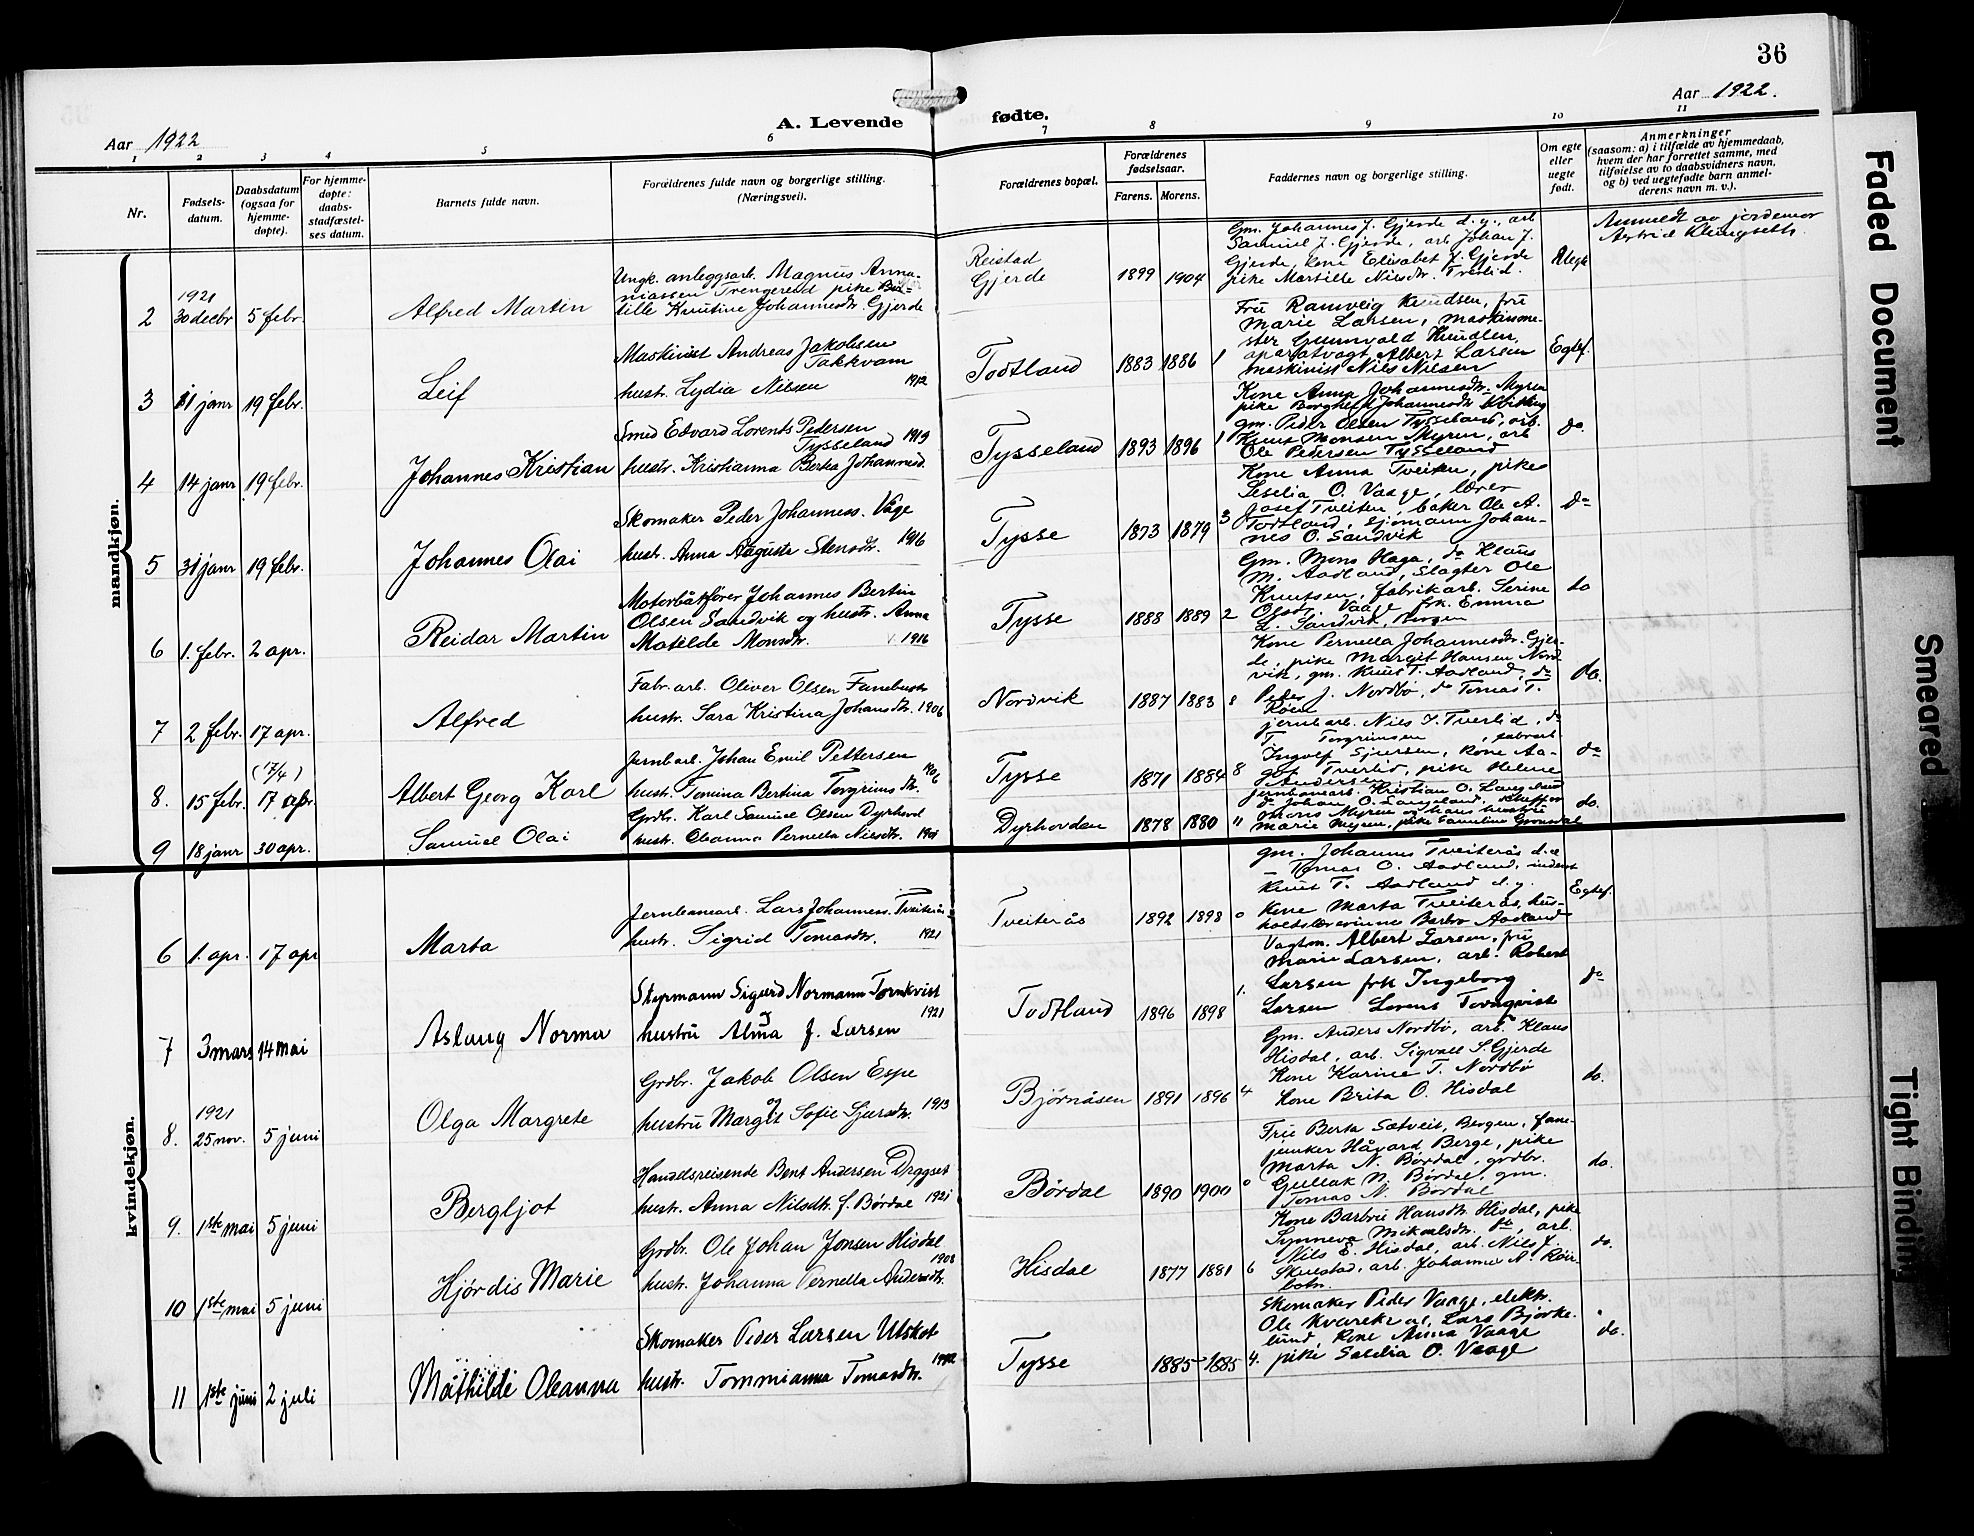 36
Aar 1922
A. Levende fødte.
Aar 1922.
1 2 3 4 5 6 7 8 9 10 11
Nr.
Fødsels-
datum.
Daabsdatum
(ogsaa for
hjemme-
døpte).
For hjemme-
døpte:
daabs-
stadfæstel-
ses datum.
Barnets fulde navn.
Forældrenes fulde navn og borgerlige stilling.
(Næringsvei).
Forældrenes bopæl.
Forældrenes
fødselsaar.
Farens. Morens.
Faddernes navn og borgerlige stilling.
Om egte
eller
uegte
født.
Anmerkninger
(saasom: a) i tilfælde av hjemmedaab,
hvem der har forrettet samme, med
tilføielse av to daabsvidners navn,
og b) ved uegtefødte barn anmel-
derens navn m. v.).
mandkjøn.
2
1921
30 decbr
5 febr.
Alfred Martin
Ungk. anleggsarb. Magnus Anna-
niassen Trengereid pike
tille Knutine Johannesdtr. Gjerde
Reistad
Gjerde
1899 1904
Gm. Johannes J. Gjerde d. y., arb
Samuel J. Gjerde, arb. Johan J.
Gjerde, kone Elisabet J. Gjerde
pike Martille Nilsdtr. Tverlid.
Uegte
Anmeldt av jordemor
Astrid Klungseth.
3
11 janr
19 febr.
Leif
Maskinist Andreas Jakobsen
Takkvam
hustr. Lydia Nilsen 1912
Todtland
1883 1886 1
Fru Ranveig Knudsen, fru
Marie Larsen, maskinme-
ster Gunnvald Knudsen,
aparatvagt Albert Larsen
maskinist Nils Nilsen
Egtef.
4
14 janr
19 febr.
Johannes Kristian
Smed Edvard Lorents Pedersen
Tysseland 1919
hustr. Kristianna Bertea Johannesd.
Tysseland
1893 1896 1
Kone Anna Johannesdtr. Myren
pike Borghild Johannesdtr.
gm. Peder Olsen Tysseland, arb.
Knut Monsen Myren, arb
Ole Pedersen Tysseland
do
5
31 janr
19 febr.
Johannes Olai
Skomaker Peder Johanness. Våge
hustr. Anna Augusta Stensdtr. 1916
Tysse
1873 1879 3
Kone Anna Tveiten, pike
Seselia O. Vaage, lærer
Josef Tveiten, baker Ole A.
Todtland, sjømann Johan-
nes O. Sandvik
do
6
1. febr.
2 apr.
Reidar Martin
Motorbåtfører Johannes Bertin
Olsen Sandvik og hustr. Anna
Matilde Monsdtr. 1916
Tysse
1888 1889 2
Gm. Mons Haga, do Klaus
M. Aadland, Slagter Ole
Knutsen, fabrikarb. Serine
Olsdr. Vaage frk. Emma
L. Sandvik, Bergen
do
7
2 febr.
17 apr.
Alfred
Fabr. arb. Oliver Olsen Fanebust
hustr. Sara Kristina Johansdtr. 1906
Nordvik
1887 1883 8
Kone Pernella Johannesdtr. Gjer-
de, pike Margit Hansen Nord-
vik, gm. Knut T. Aadland, do
Peder J. Nordbø, do Tomas T.
Røen
do.
8.
15 febr.
(17/4)
17 apr
Albert Georg Karl
Jernbarb. Johan Emil Pettersen
1906
hustr. Tomina Bertina Torgrimsdtr.
Tysse
1871 1884 8
jernbarb. Nils J. Tverlid, do
T. Torgrimsen, fabrarb
Ingolf Sjursen, kone Aa-
got Tverlid, pike Helene
Andersen
do
9
18 janr
30 apr.
Samuel Olai
Grdbr. Karl Samuel Olsen Dyrhovd
hustr. Oleanna Pernella Nilsdtr. 1901
Dyrhovden
1878 1880 11
jernbanearb. Kristian O. Langeland
do Johan O. Langeland,
Mons Myren og hans hustru
Marie Myren, pike Samuline
do.
kvindekjøn.
6
1. apr.
17 apr
Marta
Jernbanearb. Lars Johanness. Tveiterås
hustr. Sigrid Tomasdtr. 1921
Tveiterås
1892 1898 0
gm. Johannes Tveiterås d.e.
— Tomas O. Aadland,
Knut T. Aadland d.y.
kone Marta Tveiterås, hus-
holdslærerinne Barbro Aadland
Egtef.
7
3 mars
14 mai
Aslaug Norma
Styrmann Sigurd Normann Tornkvist
1921
hustru Alma J. Larsen
Todtland
1896 1898 1.
Vagtm. Albert Larsen, fru
Marie Larsen, arb. Robert
Larsen frk Ingeborg
Larsen Lorens Tornqvist
do
8.
1921
25 nov.
5 juni
Olga Margrete
Grdbr. Jakob Olsen Espe
hustru Margit Sofie Sjursdtr. 1913
Bjørnåsen
1891 1896 4
Gm. Anders Nordbø, arb. Klaus
Hisdal, arb. Sigvall S. Gjerde
Kone Karine T. Nordbø
Kone Brita O. Hisdal
do.
9.
1ste mai
5 juni
Bergljot
Handelsreisende Bent Andersen Dragset
hustr. Anna Nilsdtr. f. Børdal 1921
Børdal
1890 1900 0
Fru Berta Sætveit, Bergen, fane-
junker Håvard Berge, pike
Marta N. Børdal, grdbr.
Gullak N. Børdal, gm.
Tomas N. Børdal
do.
10
1ste mai
5 juni
Hjørdis Marie
Grdbr. Ole Johan Jonsen Hisdal
1908
hustr. Johanna Pernella Andersdtr.
Hisdal
1877 1881 6
Kone Barbru Hansdtr. Hisdal, pike
Synneva Mikaelsdtr. do, arb.
Nils E. Hisdal, arb. Nils J.
Skulstad, arb. Johannes A. Røir-
botn.
do.
11
1ste juni
2 juli
Mathilde Oleanna
Skomaker Peder Larsen Ulskot
1912
hustr. Tommianna Tomasdtr.
Tysse
1885 1885 4.
Skomaker Peder Vaage, elektr.
Ole Kvarekvål, Lars Bjørke-
lund, kone Anna Vaage
pike Seselia O. Vaage
do.
Faded Document
Smeared
Tight Binding